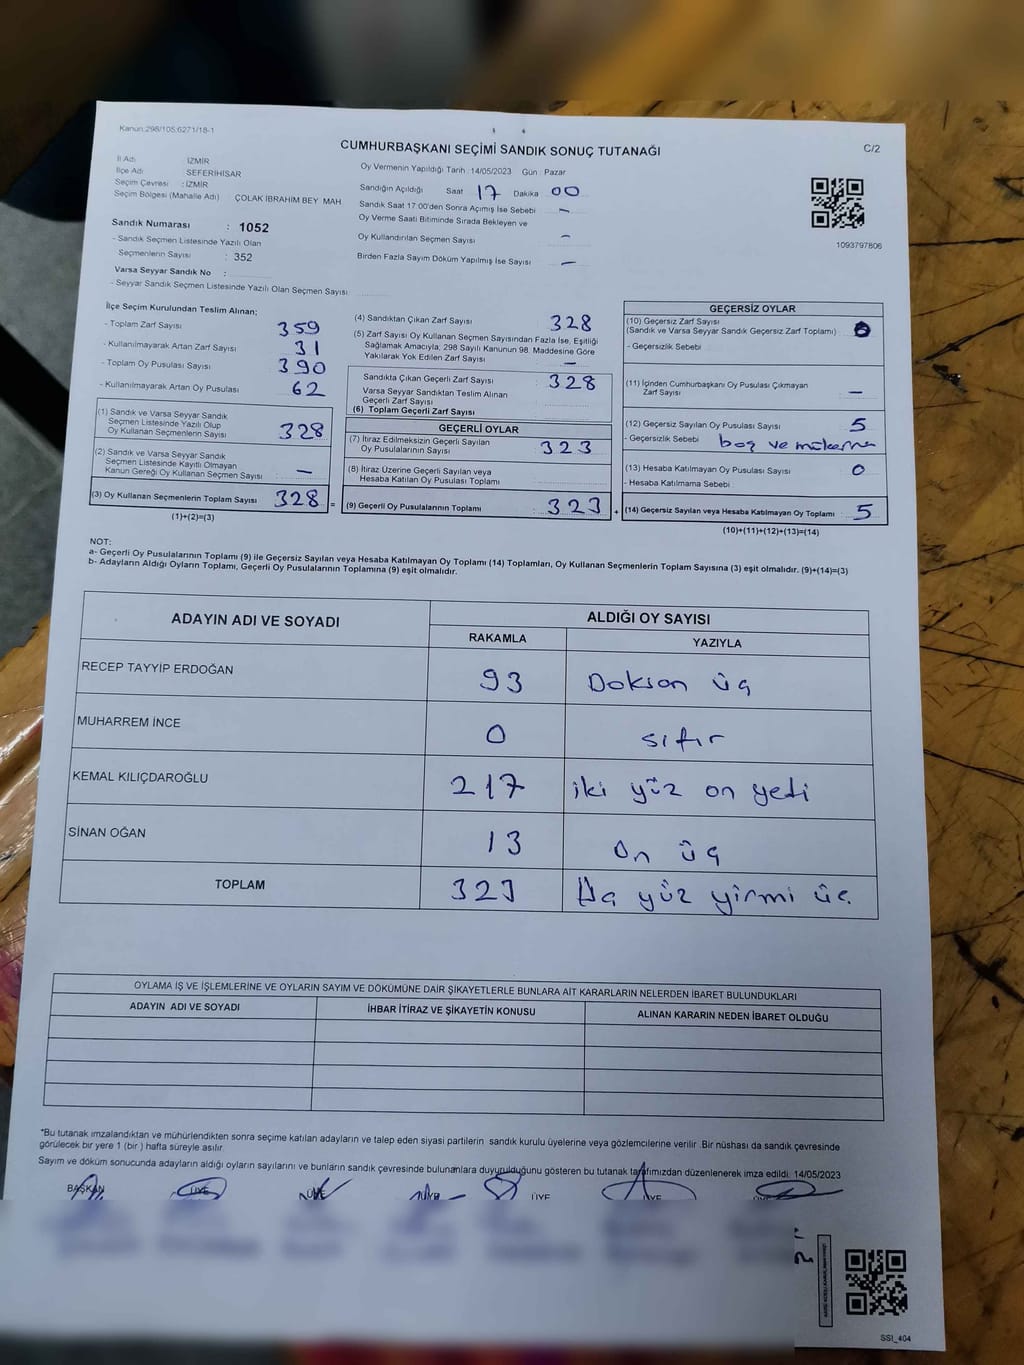 Kanun:298/105,6271/18-1
CUMHURBAŞKANI SEÇİMİ SANDIK SONUÇ TUTANAĞI
C/2
İl Adı İZMİR
İlçe Adı SEFERİHİSAR
Seçim Çevresi : İZMİR
Seçim Bölgesi (Mahalle Adı) ÇOLAK İBRAHİM BEY MAH
Sandık Numarası : 1052
- Sandık Seçmen Listesinde Yazılı Olan
Seçmenlerin Sayısı : 352
Varsa Seyyar Sandık No :
- Seyyar Sandık Seçmen Listesinde Yazılı Olan Seçmen Sayısı
Oy Vermenin Yapıldığı Tarih :14/05/2023 Gün : Pazar
Sandığın Açıldığı Saat 17 Dakika 00
Sandık Saat 17:00'den Sonra Açımış İse Sebebi –
Oy Verme Saati Bitiminde Sırada Bekleyen ve
Oy Kullandırılan Seçmen Sayısı –
Birden Fazla Sayım Döküm Yapılmış İse Sayısı –
1093797806
İlçe Seçim Kurulundan Teslim Alınan;
- Toplam Zarf Sayısı 359
- Kullanılmayarak Artan Zarf Sayısı 31
- Toplam Oy Pusulası Sayısı 390
- Kullanılmayarak Artan Oy Pusulası 62
(1) Sandık ve Varsa Seyyar Sandık
Seçmen Listesinde Yazılı Olup
Oy Kullanan Seçmenlerin Sayısı 328
(2) Sandık ve Varsa Seyyar Sandık
Seçmen Listesinde Kayıtlı Olmayan
Kanun Gereği Oy Kullanan Seçmen Sayısı : –
(3) Oy Kullanan Seçmenlerin Toplam Sayısı 328 =
(1)+(2)=(3)
(4) Sandıktan Çıkan Zarf Sayısı 328
(5) Zarf Sayısı Oy Kullanan Seçmen Sayısından Fazla İse, Eşitliği
Sağlamak Amacıyla; 298 Sayılı Kanunun 98. Maddesine Göre
Yakılarak Yok Edilen Zarf Sayısı –
Sandıkta Çıkan Geçerli Zarf Sayısı : 328
Varsa Seyyar Sandıktan Teslim Alınan
Geçerli Zarf Sayısı
(6) Toplam Geçerli Zarf Sayısı
GEÇERLİ OYLAR
(7) İtiraz Edilmeksizin Geçerli Sayılan
Oy Pusulalarının Sayısı : 323
(8) İtiraz Üzerine Geçerli Sayılan veya
Hesaba Katılan Oy Pusulası Toplamı
(9) Geçerli Oy Pusulalarının Toplamı : 323 +
GEÇERSİZ OYLAR
(10) Geçersiz Zarf Sayısı
(Sandık ve Varsa Seyyar Sandık Geçersiz Zarf Toplamı)
- Geçersizlik Sebebi
(11) İçinden Cumhurbaşkanı Oy Pusulası Çıkmayan
Zarf Sayısı –
(12) Geçersiz Sayılan Oy Pusulası Sayısı 5
- Geçersizlik Sebebi boş ve
(13) Hesaba Katılmayan Oy Pusulası Sayısı 0
- Hesaba Katılmama Sebebi
(14) Geçersiz Sayılan veya Hesaba Katılmayan Oy Toplamı : 5
(10)+(11)+(12)+(13)=(14)
NOT:
a- Geçerli Oy Pusulalarının Toplamı (9) ile Geçersiz Sayılan veya Hesaba Katılmayan Oy Toplamı (14) Toplamları, Oy Kullanan Seçmenlerin Toplam Sayısına (3) eşit olmalıdır. (9)+(14)=(3)
b- Adayların Aldığı Oyların Toplamı, Geçerli Oy Pusulalarının Toplamına (9) eşit olmalıdır.
ADAYIN ADI VE SOYADI
ALDIĞI OY SAYISI
RAKAMLA YAZIYLA
RECEP TAYYİP ERDOĞAN 93 Dokson üç
MUHARREM İNCE 0 sıfır
KEMAL KILIÇDAROĞLU 217 iki yüz on yedi
SİNAN OĞAN 13 On üç
TOPLAM 323 yüz yirmi üç
OYLAMA İŞ VE İŞLEMLERİNE VE OYLARIN SAYIM VE DÖKÜMÜNE DAİR ŞİKAYETLERLE BUNLARA AİT KARARLARIN NELERDEN İBARET BULUNDUKLARI
ADAYIN ADI VE SOYADI İHBAR İTİRAZ VE ŞİKAYETİN KONUSU ALINAN KARARIN NEDEN İBARET OLDUĞU
*Bu tutanak imzalandıktan ve mühürlendikten sonra seçime katılan adayların ve talep eden siyasi partilerin sandık kurulu üyelerine veya gözlemcilerine verilir. Bir nüshası da sandık çevresinde
görülecek bir yere 1 (bir ) hafta süreyle asılır.
Sayım ve döküm sonucunda adayların aldığı oyların sayılarını ve bunların sandık çevresinde bulunanlara duyurulduğunu gösteren bu tutanak tarafımızdan düzenlenerek imza edildi. 14/05/2023
BAŞKAN ÜYE ÜYE ÜYE ÜYE ÜYE ÜYE
SSI_404